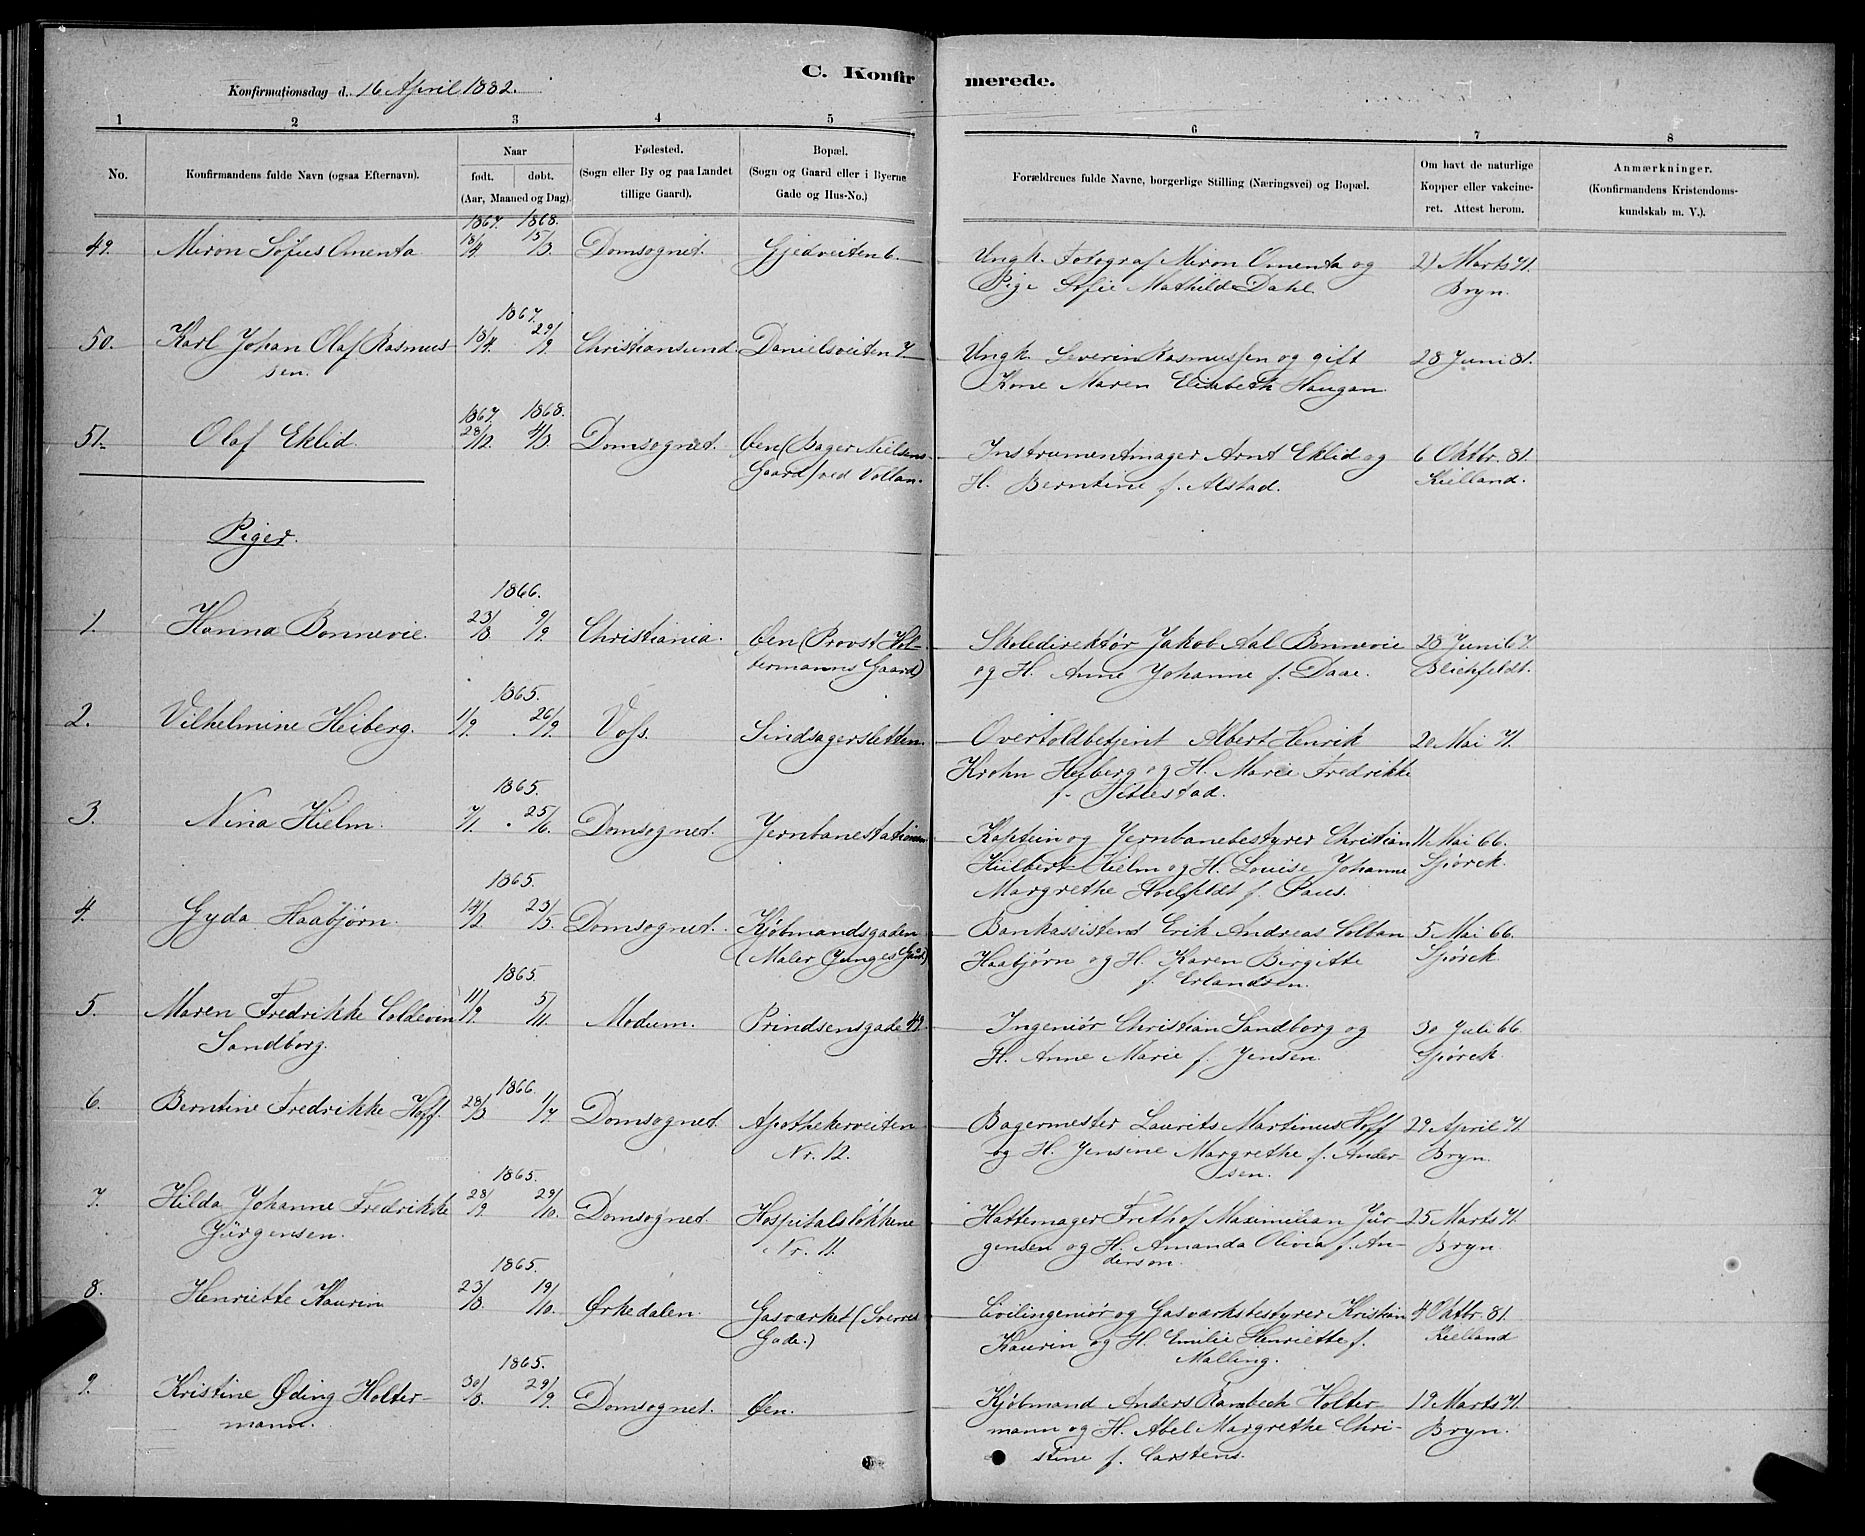 C. Konfirmerede.
Konfirmationsdag d. 16 April 1882.
1 2 3 4 5 6 7 8
No.
Konfirmandens fulde Navn (ogsaa Efternavn).
Naar
født. døbt.
(Aar, Maaned og Dag).
Fødested.
(Sogn eller By og paa Landet
tillige Gaard).
Bopæl.
(Sogn og Gaard eller i Byerne
Gade og Hus-No.)
Forældrenes fulde Navne, borgerlige Stilling (Næringsvei) og Bopæl.
Om havt de naturlige
Kopper eller vakcine-
ret. Attest herom.
Anmærkninger.
(Konfirmandens Kristendoms-
kundskab m. V.).
1867. 1868.
49. Miron Sofus Omenta 18/4 15/3 Domsognet. Gjedveiten 6. Ungk. Fotograf Miron Omenta og 21 Marts 71.
Pige Sofie Mathilde Dahl Bryn.
1867.
50. Karl Johan Olaf Rasmus 18/4. 29/9. Christiansund Danielsveiten 7 Ungk. Severin Rasmussen og gift 28 Juni 81.
sen. Kone Maren Elisabeth Haugan
1867. 1868.
51. Olaf Eklid 28/12. 4/3. Domsognet. Øen (Bager Nielsens Instrumentmager Arnt Eklid og 6 Oktbr. 81.
Gaard) ved Vollan. H. Berntine f. Alstad. Kielland.
Piger.
1866.
1. Hanna Bonnevie. 23/8 9/9. Christiania. Øen (Provst Hol- Skoledirektør Jakob Aal Bonnevie 28 Juni 67.
termanns Gaard) og H. Anne Johanne f. Daae. Blichfeldt.
1865.
2. Vilhelmine Heiberg. 1/9. 26/9. Voss. Sindsagersletten. Overtoldbetjent Albert Henrik 20 Mai 71.
Krohn Heiberg og H. Marie Fredrikke
1865.
3. Nina Hielm. 7/1. 25/6. Domsognet. Jernbanestationen Kaptein og Jernbanebestyrer Christian 11 Mai 66.
Hielm og H. Louise Johanne Spørck.
Margrethe f. Paus.
1865.
4. Gyda Haabjørn. 14/2 23/5. Domsognet. Kjøbmandsgaden Bankassistent Erik Andreas Colban 5 Mai 66.
(Maler Junges Gaard) Haabjørn og H. Karen Birgitte Spørck
f. Erlandsen.
1865.
5. Maren Fredrikke Coldevin 11/9. 5/11. Modum. Prindsensgade 49. Ingeniør Christian Sandborg og 30 Juli 66.
Sandborg. H. Anne Marie f. Jensen. Spørck.
1866.
6. Berntine Fredrikke Hoff. 28/3 1/7. Domsognet Apothekerveiten Bagermester Laurits Martinus Hoff 29 April 71.
Nr. 12. og H. Jensine Margrethe f. Ander- Bryn.
sen.
1865.
7. Hilda Johanne Fredrikke 28/9. 29/10. Domsognet Hospitalsløkkene Hattemager Frithof Maximilian Jür- 25 Marts 71.
Jürgensen. Nr. 11. gensen og H. Amanda Olivia f. An- Bryn.
derson.
1865.
8. Henriette Kaurin 23/8. 19/10. Ørkedalen. Gasværket (Sverres Civilingeniør og Gasværksbestyrer Kristian 4 Oktbr. 81.
Gade.) Kaurin og H. Emilie Henriette f. Kielland
Malling.
1865.
9. Kristine Øding Holter- 30/8. 29/9. Domsognet. Øen. Kjøbmand Anders Rambech Holter- 19 Marts 71.
mann. mann og H. Abel Margrethe Chri- Bryn.
stine f. Carstens.